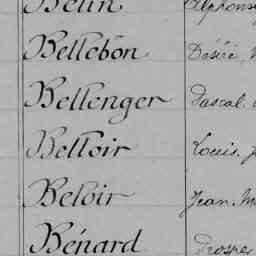 Belin Alphonse
Bellebon Désiré
Bellenger Pascal
Belloir Louis. J
Beloir Jean. M
Bénard Prosper